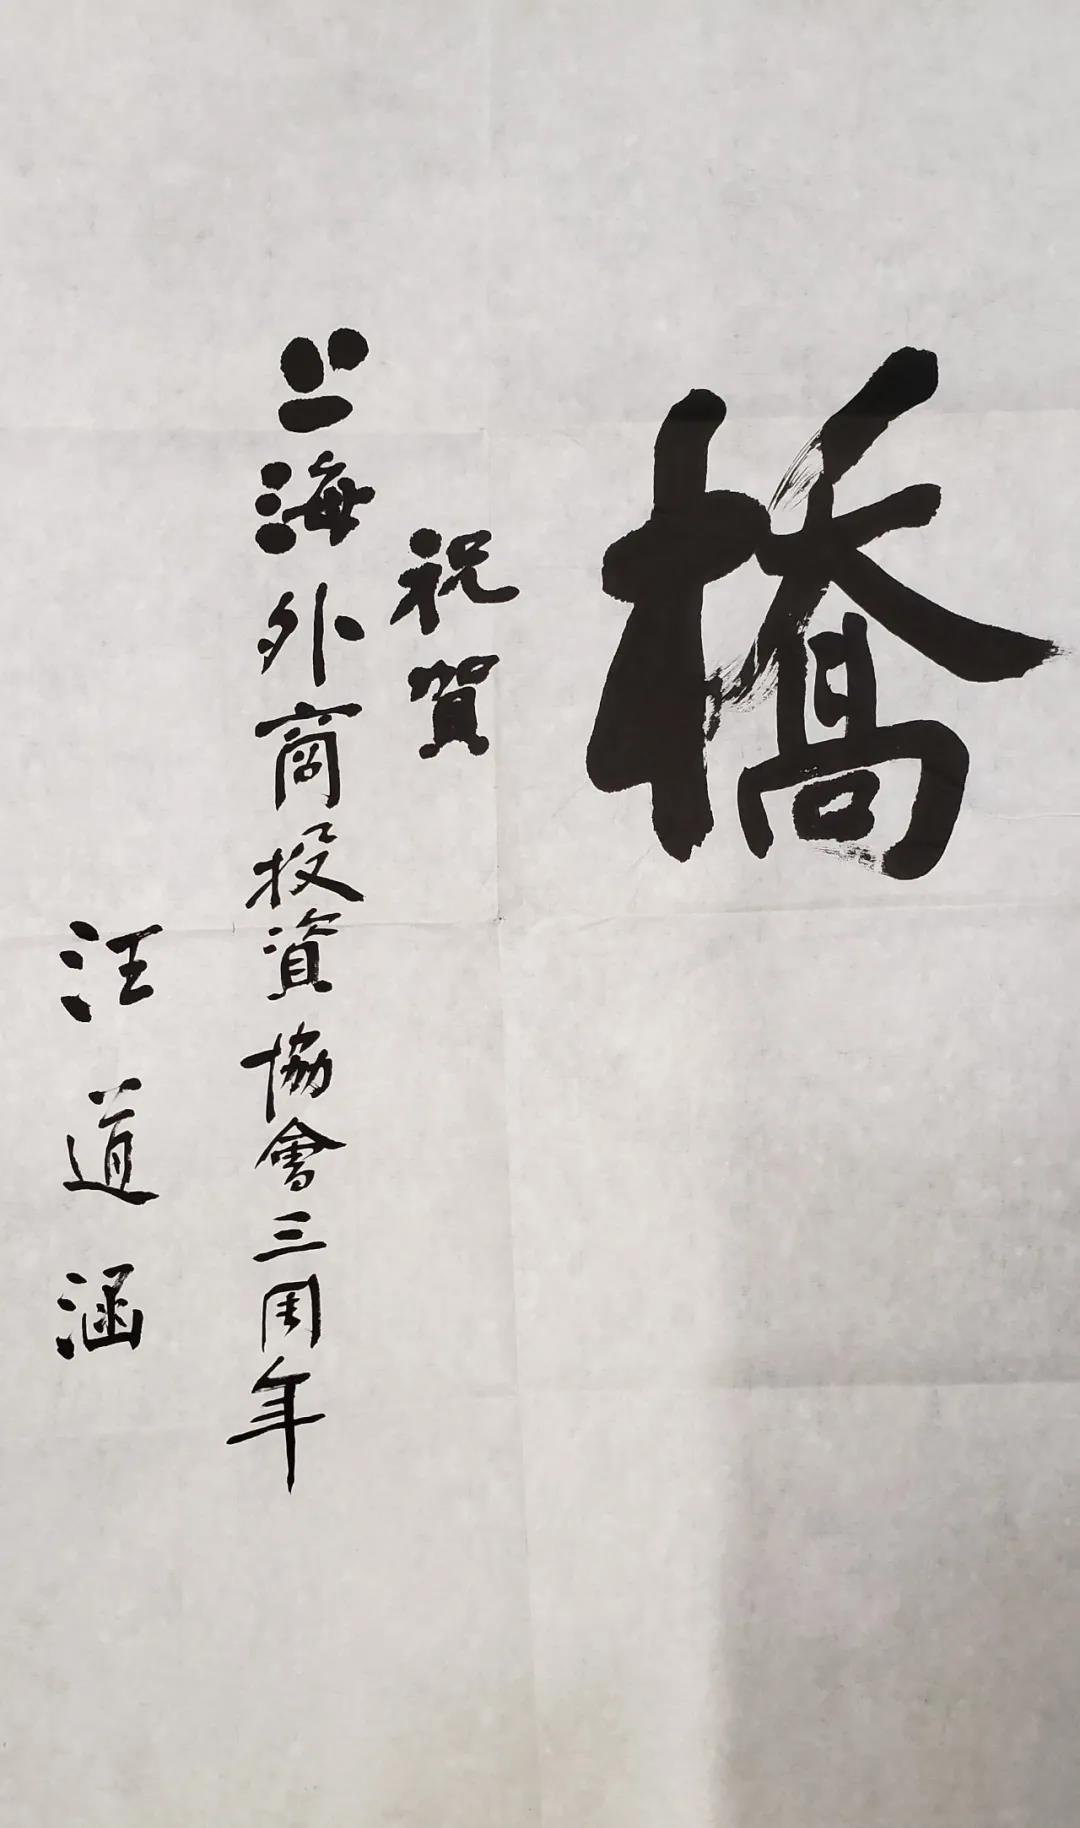 橋
祝賀
上海外商投資協會三周年
汪道涵